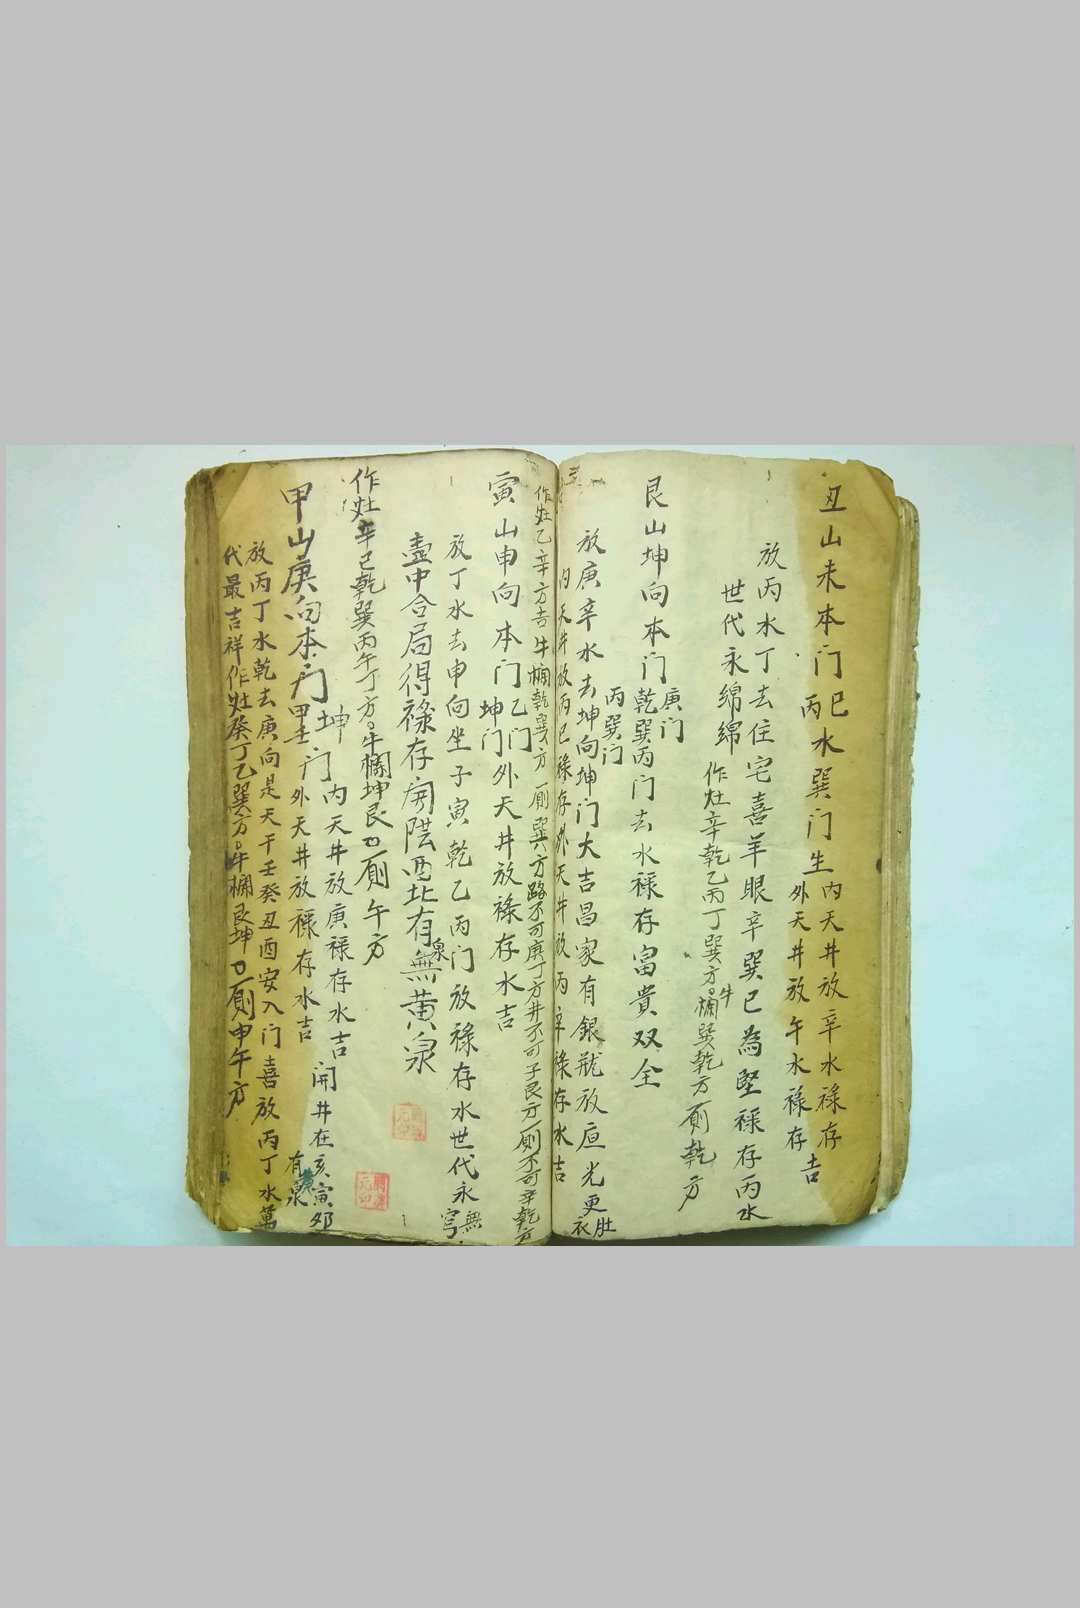 丑山未本门巳丙水巽门生内天井放辛水禄存
外天井放午水禄存吉
放丙水丁去住宅喜羊眼辛巽巳為堅禄存丙水
世代永綿綿
作灶辛乾乙丙丁巽方牛欄巽乾方厠乾方
艮山坤向本门庚门乾巽丙门去水禄存富貴双全
丙巽门
放庚辛水去坤向坤门大吉昌家有銀瓶放光更
内天井放丙巳禄存外天井放丙辛禄存水吉
作灶乙辛方吉牛欄乾巽方厠巽方路不可庚丁方井不可子艮方厠不可辛乾方
寅山申向本门乙门坤门外天井放禄存水吉
放丁水去申向坐子寅乾乙丙门放禄存水世代永無穷
盡中合局得禄存開西北有無黄泉
作灶辛巳乾巽丙午丁方牛欄坤艮厠午方
甲山庚向本门坤门内天井放庚禄存水吉
甲壬门外天井放禄存水吉
開井在亥寅卯有泉
放丙丁水乾去庚向是天干壬癸丑酉安入门喜放丙丁水萬
代最吉祥作灶癸丁乙巽方牛欄艮坤厠申午方